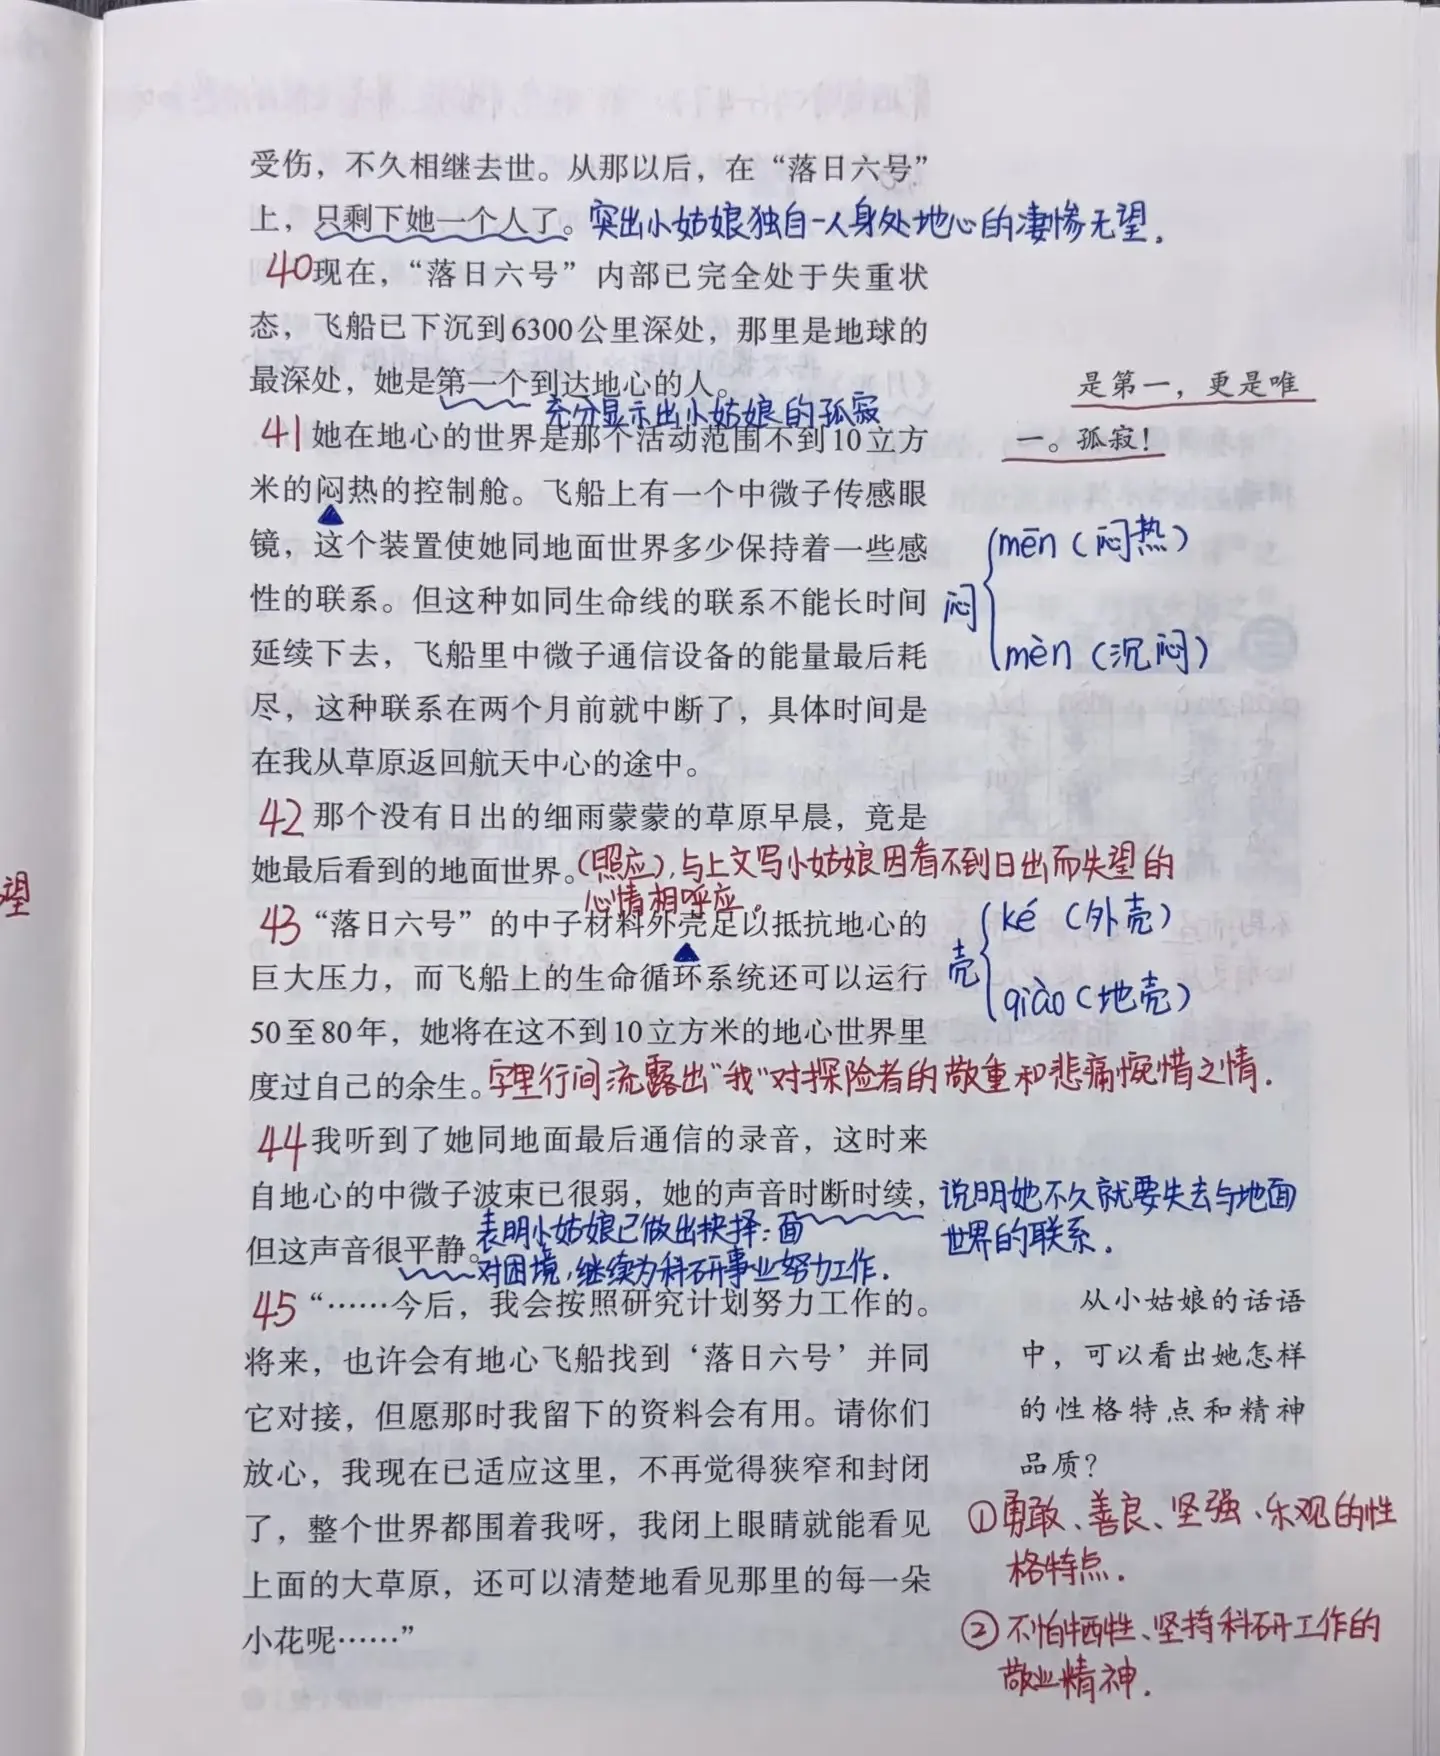 受伤，不久相继去世。从那以后，在“落日六号”
上，只剩下她一个人了。突出小姑娘独自一人身处地心的凄惨无望.
40现在，“落日六号”内部已完全处于失重状
态，飞船已下沉到6300公里深处，那里是地球的
最深处，她是第一个到达地心的人。
充分显示出小姑娘的孤寂
是第一，更是唯
一。孤寂！
41她在地心的世界是那个活动范围不到10立方
米的闷热的控制舱。飞船上有一个中微子传感眼
镜，这个装置使她同地面世界多少保持着一些感
性的联系。但这种如同生命线的联系不能长时间
延续下去，飞船里中微子通信设备的能量最后耗
尽，这种联系在两个月前就中断了，具体时间是
在我从草原返回航天中心的途中。
mēn（闷热）
闷
mèn（沉闷）
42那个没有日出的细雨蒙蒙的草原早晨，竟是
她最后看到的地面世界。(照应),与上文写小姑娘因看不到日出而失望的
心情相呼应。
43“落日六号”的中子材料外壳足以抵抗地心的
巨大压力，而飞船上的生命循环系统还可以运行
50至80年，她将在这不到10立方米的地心世界里
度过自己的余生。字里行间流露出"我"对探险者的敬重和悲痛惋惜之情.
ké（外壳）
壳
qiào（地壳）
44我听到了她同地面最后通信的录音，这时来
自地心的中微子波束已很弱，她的声音时断时续，
但这声音很平静。
表明小姑娘已做出抉择:面
对困境,继续为科研事业努力工作.
说明她不久就要失去与地面
世界的联系.
45“……今后，我会按照研究计划努力工作的。
将来，也许会有地心飞船找到‘落日六号’并同
它对接，但愿那时我留下的资料会有用。请你们
放心，我现在已适应这里，不再觉得狭窄和封闭
了，整个世界都围着我呀，我闭上眼睛就能看见
上面的大草原，还可以清楚地看见那里的每一朵
小花呢……”
从小姑娘的话语
中，可以看出她怎样
的性格特点和精神
品质？
①勇敢、善良、坚强、乐观的性
格特点.
②不怕牺牲、坚持科研工作的
敬业精神.
望